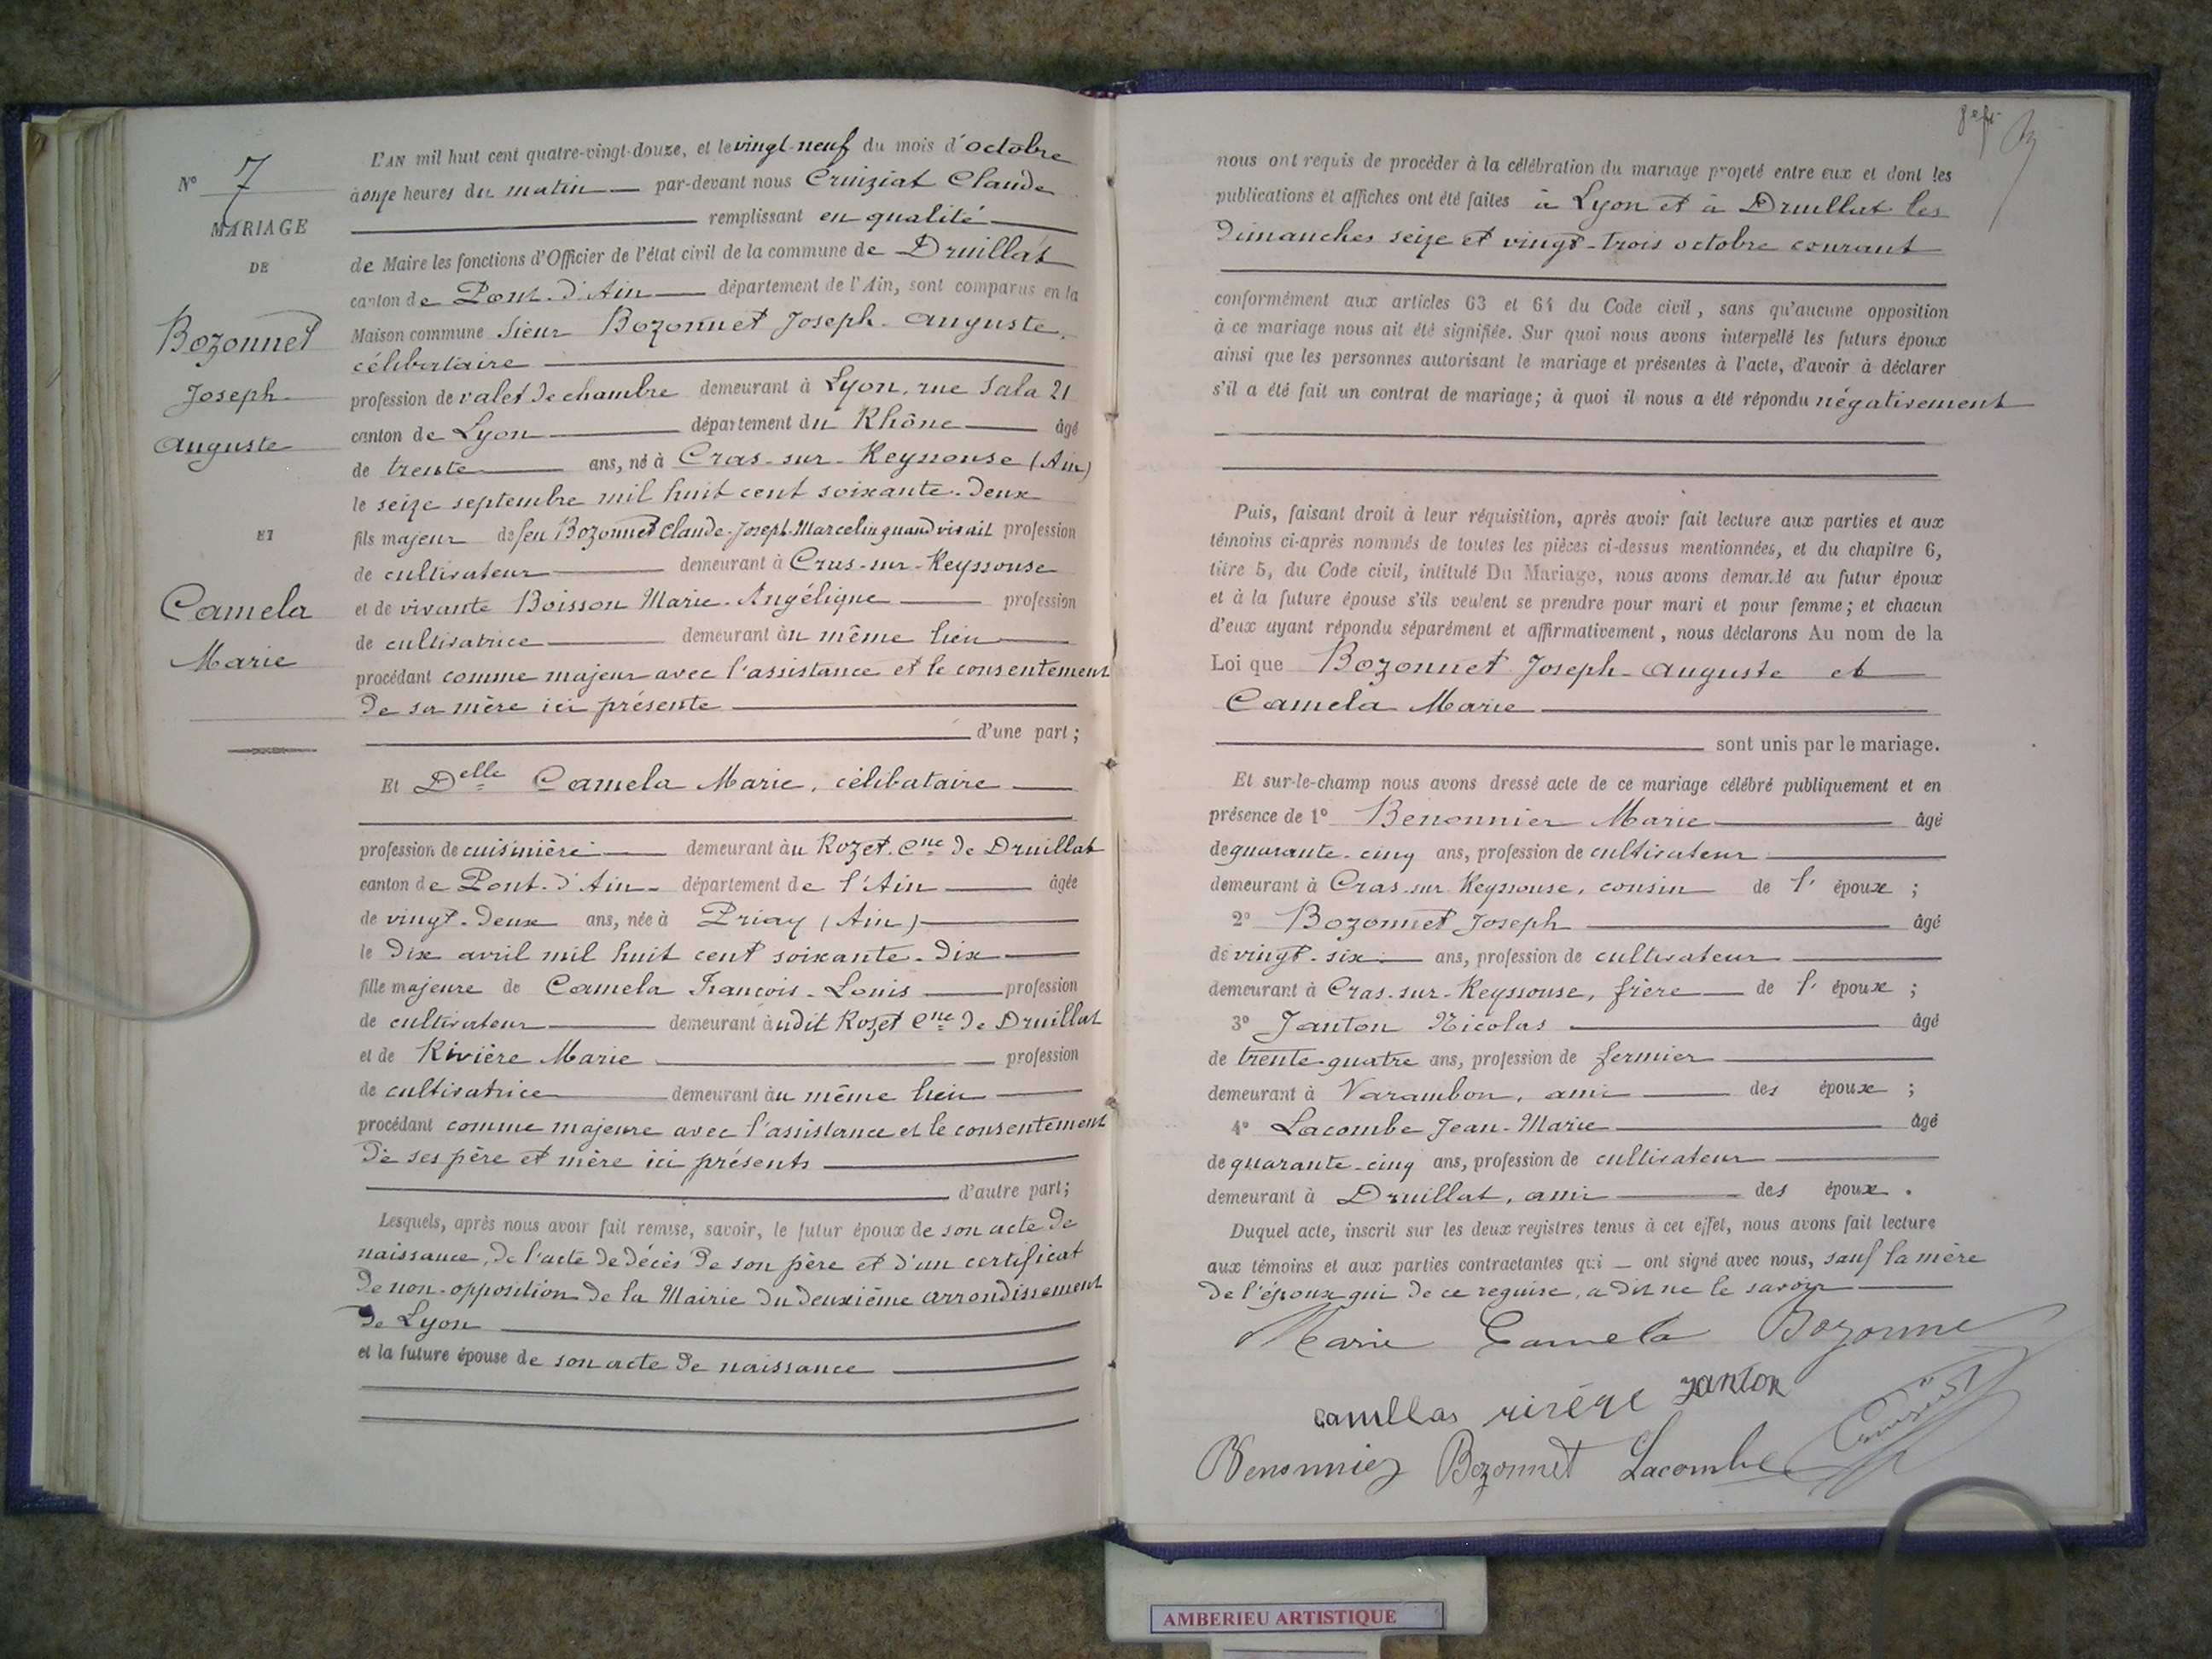 N° 7
MARIAGE
DE
Bozonnet
Joseph-
Auguste
ET
Camela
Marie
L'AN mil huit cent quatre-vingt-douze, et le vingt-neuf du mois d'octobre
à onze heures du matin par-devant nous Cruiziat Claude
remplissant en qualité
de Maire les fonctions d'Officier de l'état civil de la commune de Druillat
canton de Pont-d'Ain département de l'Ain, sont comparus en la
Maison commune Sieur Bozonnet Joseph-Auguste,
célibataire
profession de valet de chambre demeurant à Lyon, rue Sala 21
canton de Lyon département du Rhône âgé
de trente ans, né à Cras-sur-Reyssouse (Ain)
le seize septembre mil huit cent soixante-deux
fils majeur de feu Bozonnet Claude-Joseph-Marcelin quand vivait profession
de cultivateur demeurant à Cras-sur-Reyssouse
et de vivante Boisson Marie-Angélique profession
de cultivatrice demeurant au même lieu
procédant comme majeur avec l'assistance et le consentement
de sa mère ici présente
d'une part;
Et Delle Camela Marie, célibataire
profession de cuisinière demeurant au Rozet, cne de Druillat
canton de Pont-d'Ain département de l'Ain âgée
de vingt-deux ans, née à Priay (Ain)
le dix avril mil huit cent soixante-dix
fille majeure de Camela François-Louis profession
de cultivateur demeurant audit Rozet cne de Druillat
et de Rivière Marie profession
de cultivatrice demeurant au même lieu
procédant comme majeure avec l'assistance et le consentement
de ses père et mère ici présents
d'autre part;
Lesquels, après nous avoir fait remise, savoir, le futur époux de son acte de
naissance, de l'acte de décès de son père et d'un certificat
de non-opposition de la Mairie du deuxième arrondissement
de Lyon
et la future épouse de son acte de naissance
nous ont requis de procéder à la célébration du mariage projeté entre eux et dont les
publications et affiches ont été faites à Lyon et à Druillat les
dimanches seize et vingt-trois octobre courant
conformément aux articles 63 et 64 du Code civil, sans qu'aucune opposition
à ce mariage nous ait été signifiée. Sur quoi nous avons interpellé les futurs époux
ainsi que les personnes autorisant le mariage et présentes à l'acte, d'avoir à déclarer
s'il a été fait un contrat de mariage; à quoi il nous a été répondu négativement
Puis, faisant droit à leur réquisition, après avoir fait lecture aux parties et aux
témoins ci-après nommés de toutes les pièces ci-dessus mentionnées, et du chapitre 6,
titre 5, du Code civil, intitulé Du Mariage, nous avons demandé au futur époux
et à la future épouse s'ils veulent se prendre pour mari et pour femme; et chacun
d'eux ayant répondu séparément et affirmativement, nous déclarons Au nom de la
Loi que Bozonnet Joseph-Auguste et
Camela Marie
sont unis par le mariage.
Et sur-le-champ nous avons dressé acte de ce mariage célébré publiquement et en
présence de 1° Benonnier Marie âgé
de quarante-cinq ans, profession de cultivateur
demeurant à Cras-sur-Reyssouse, cousin de l'époux;
2° Bozonnet Joseph âgé
de vingt-six ans, profession de cultivateur
demeurant à Cras-sur-Reyssouse, frère de l'époux;
3° Janton Nicolas âgé
de trente-quatre ans, profession de fermier
demeurant à Varambon, ami des époux;
4° Lacombe Jean-Marie âgé
de quarante-cinq ans, profession de cultivateur
demeurant à Druillat, ami des époux.
Duquel acte, inscrit sur les deux registres tenus à cet effet, nous avons fait lecture
aux témoins et aux parties contractantes qui ont signé avec nous, sauf la mère
de l'époux qui de ce requise, a dit ne le savoir
Marie Camela Bozonne
camellas rivére janton
Benonnier Bozonnet Lacombe Cruiziat
AMBERIEU ARTISTIQUE